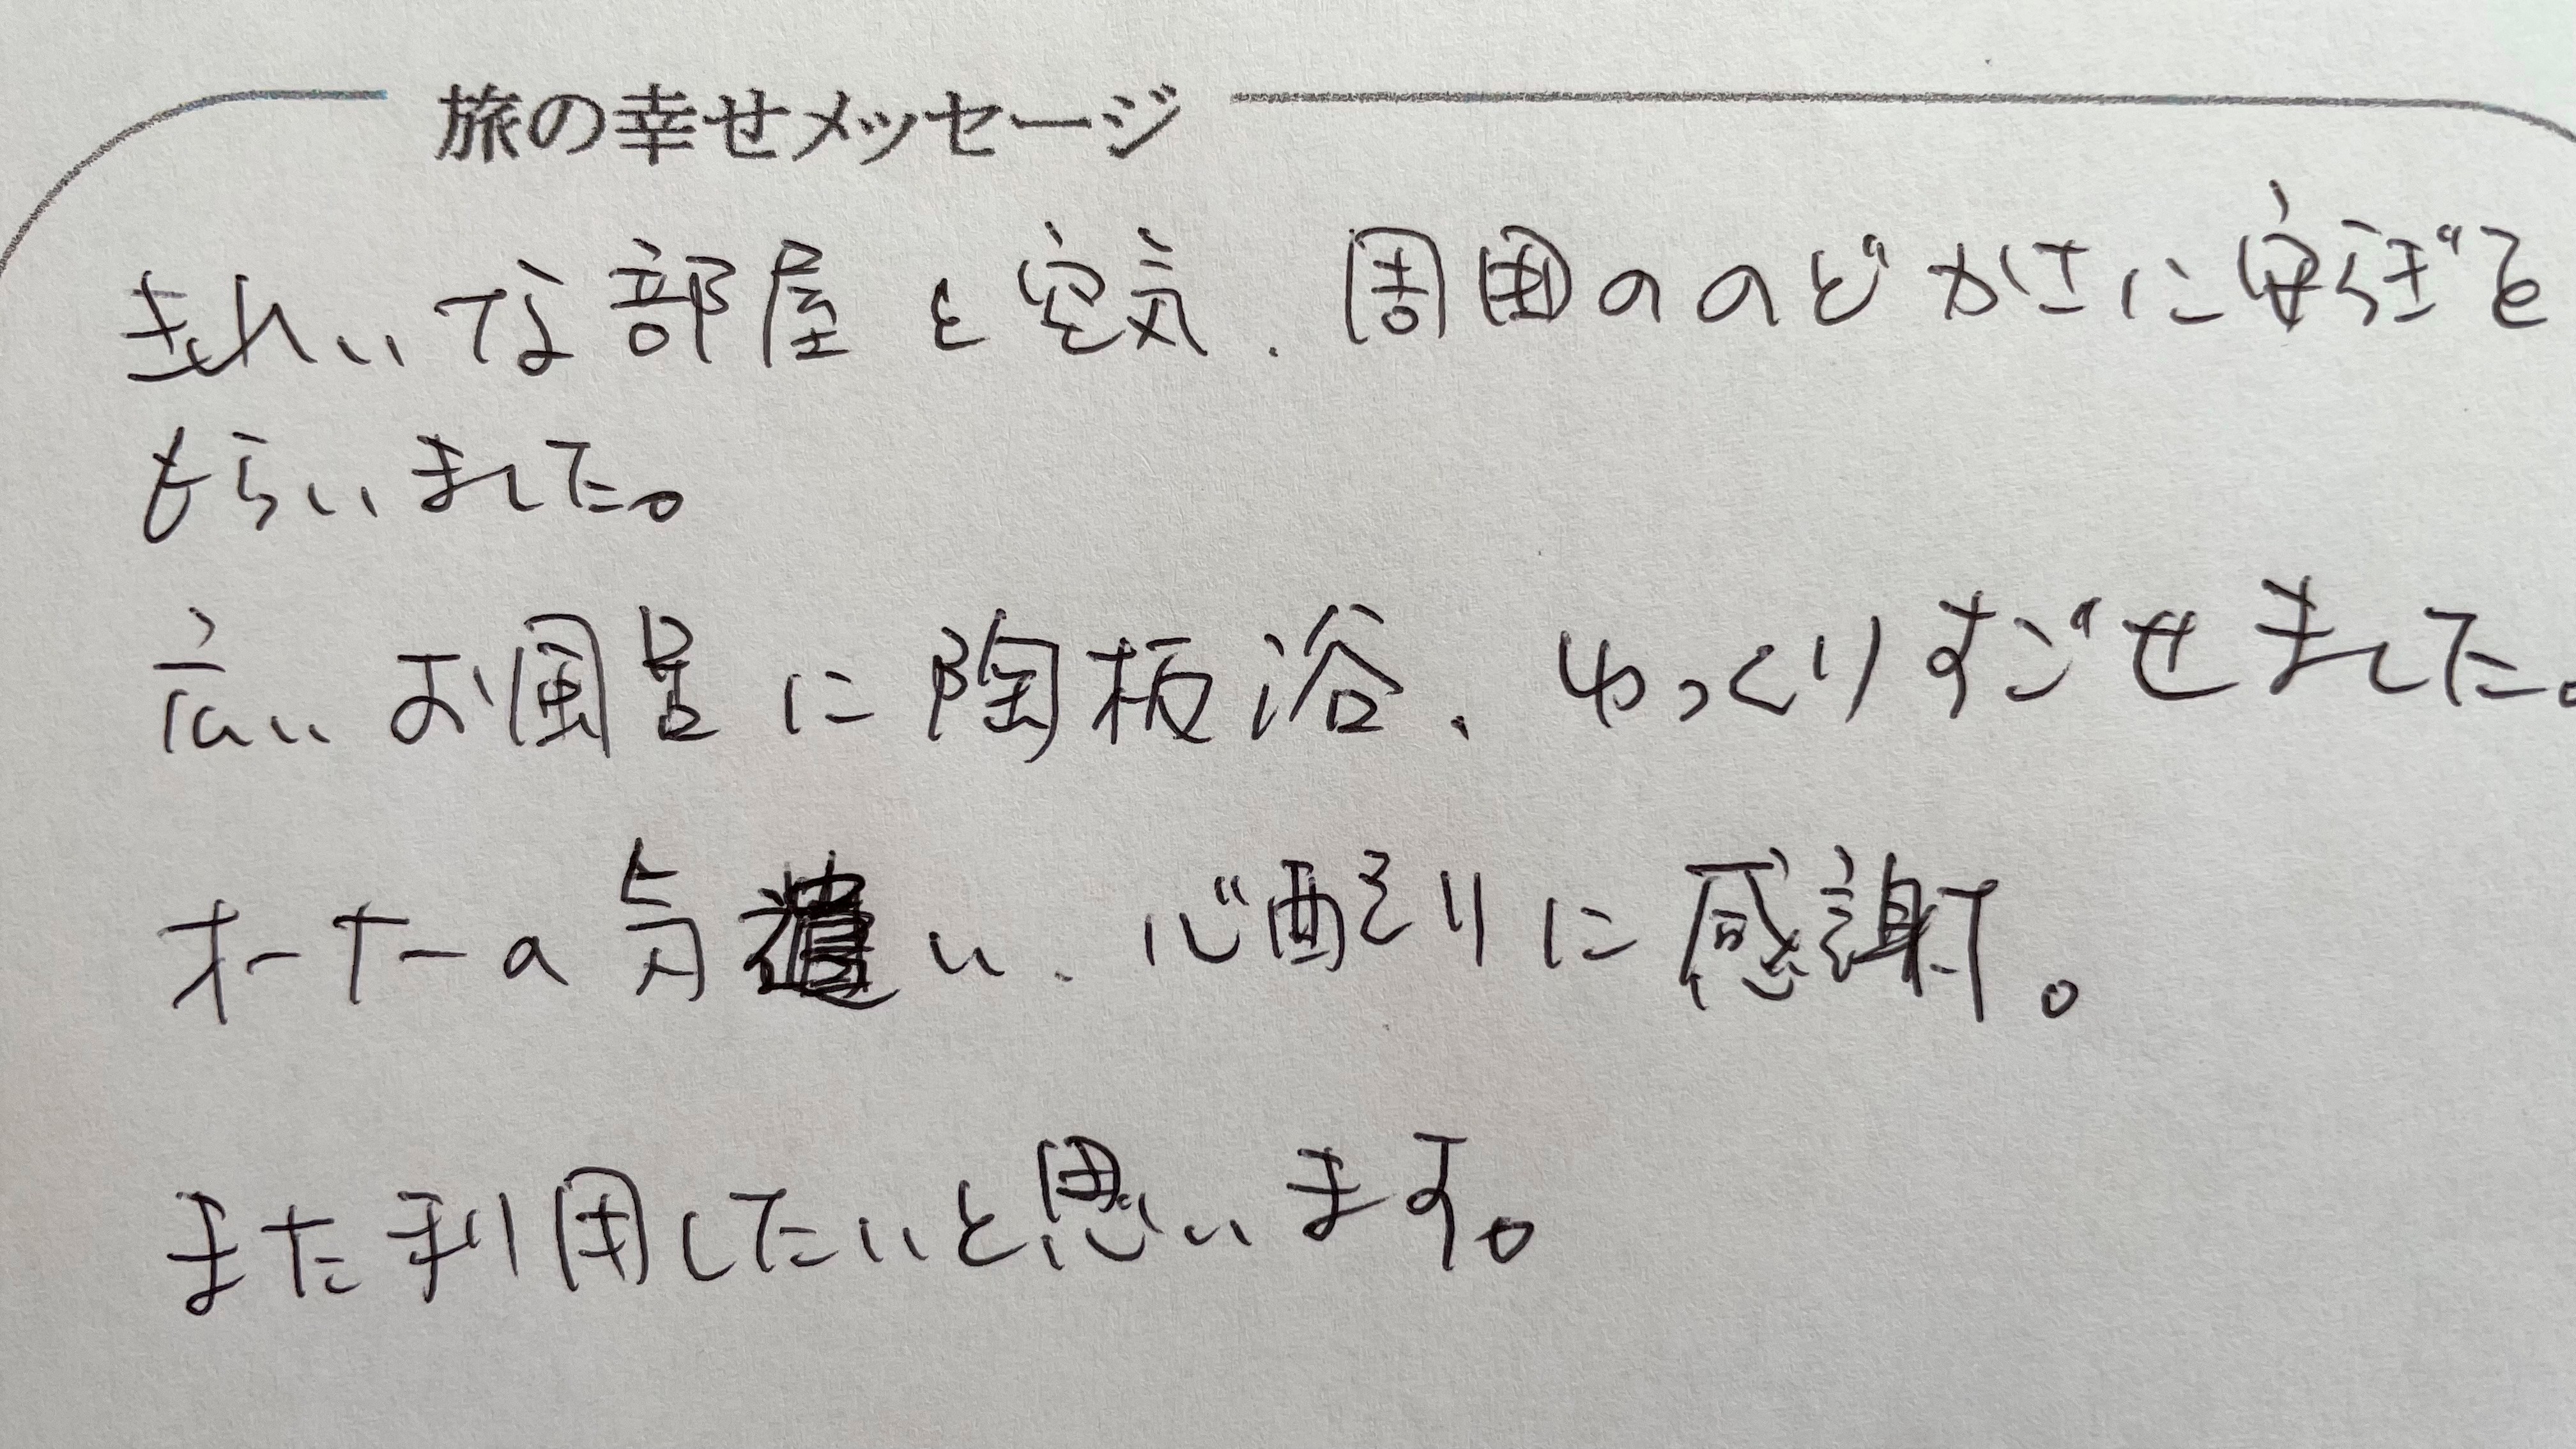 旅の幸せメッセージ
きれいな部屋と空気、周囲ののどかさに安らぎを
もらいました。
広いお風呂に陶板浴、ゆっくりすごせました。
オーナーの気遣い、心配りに感謝。
また利用したいと思います。